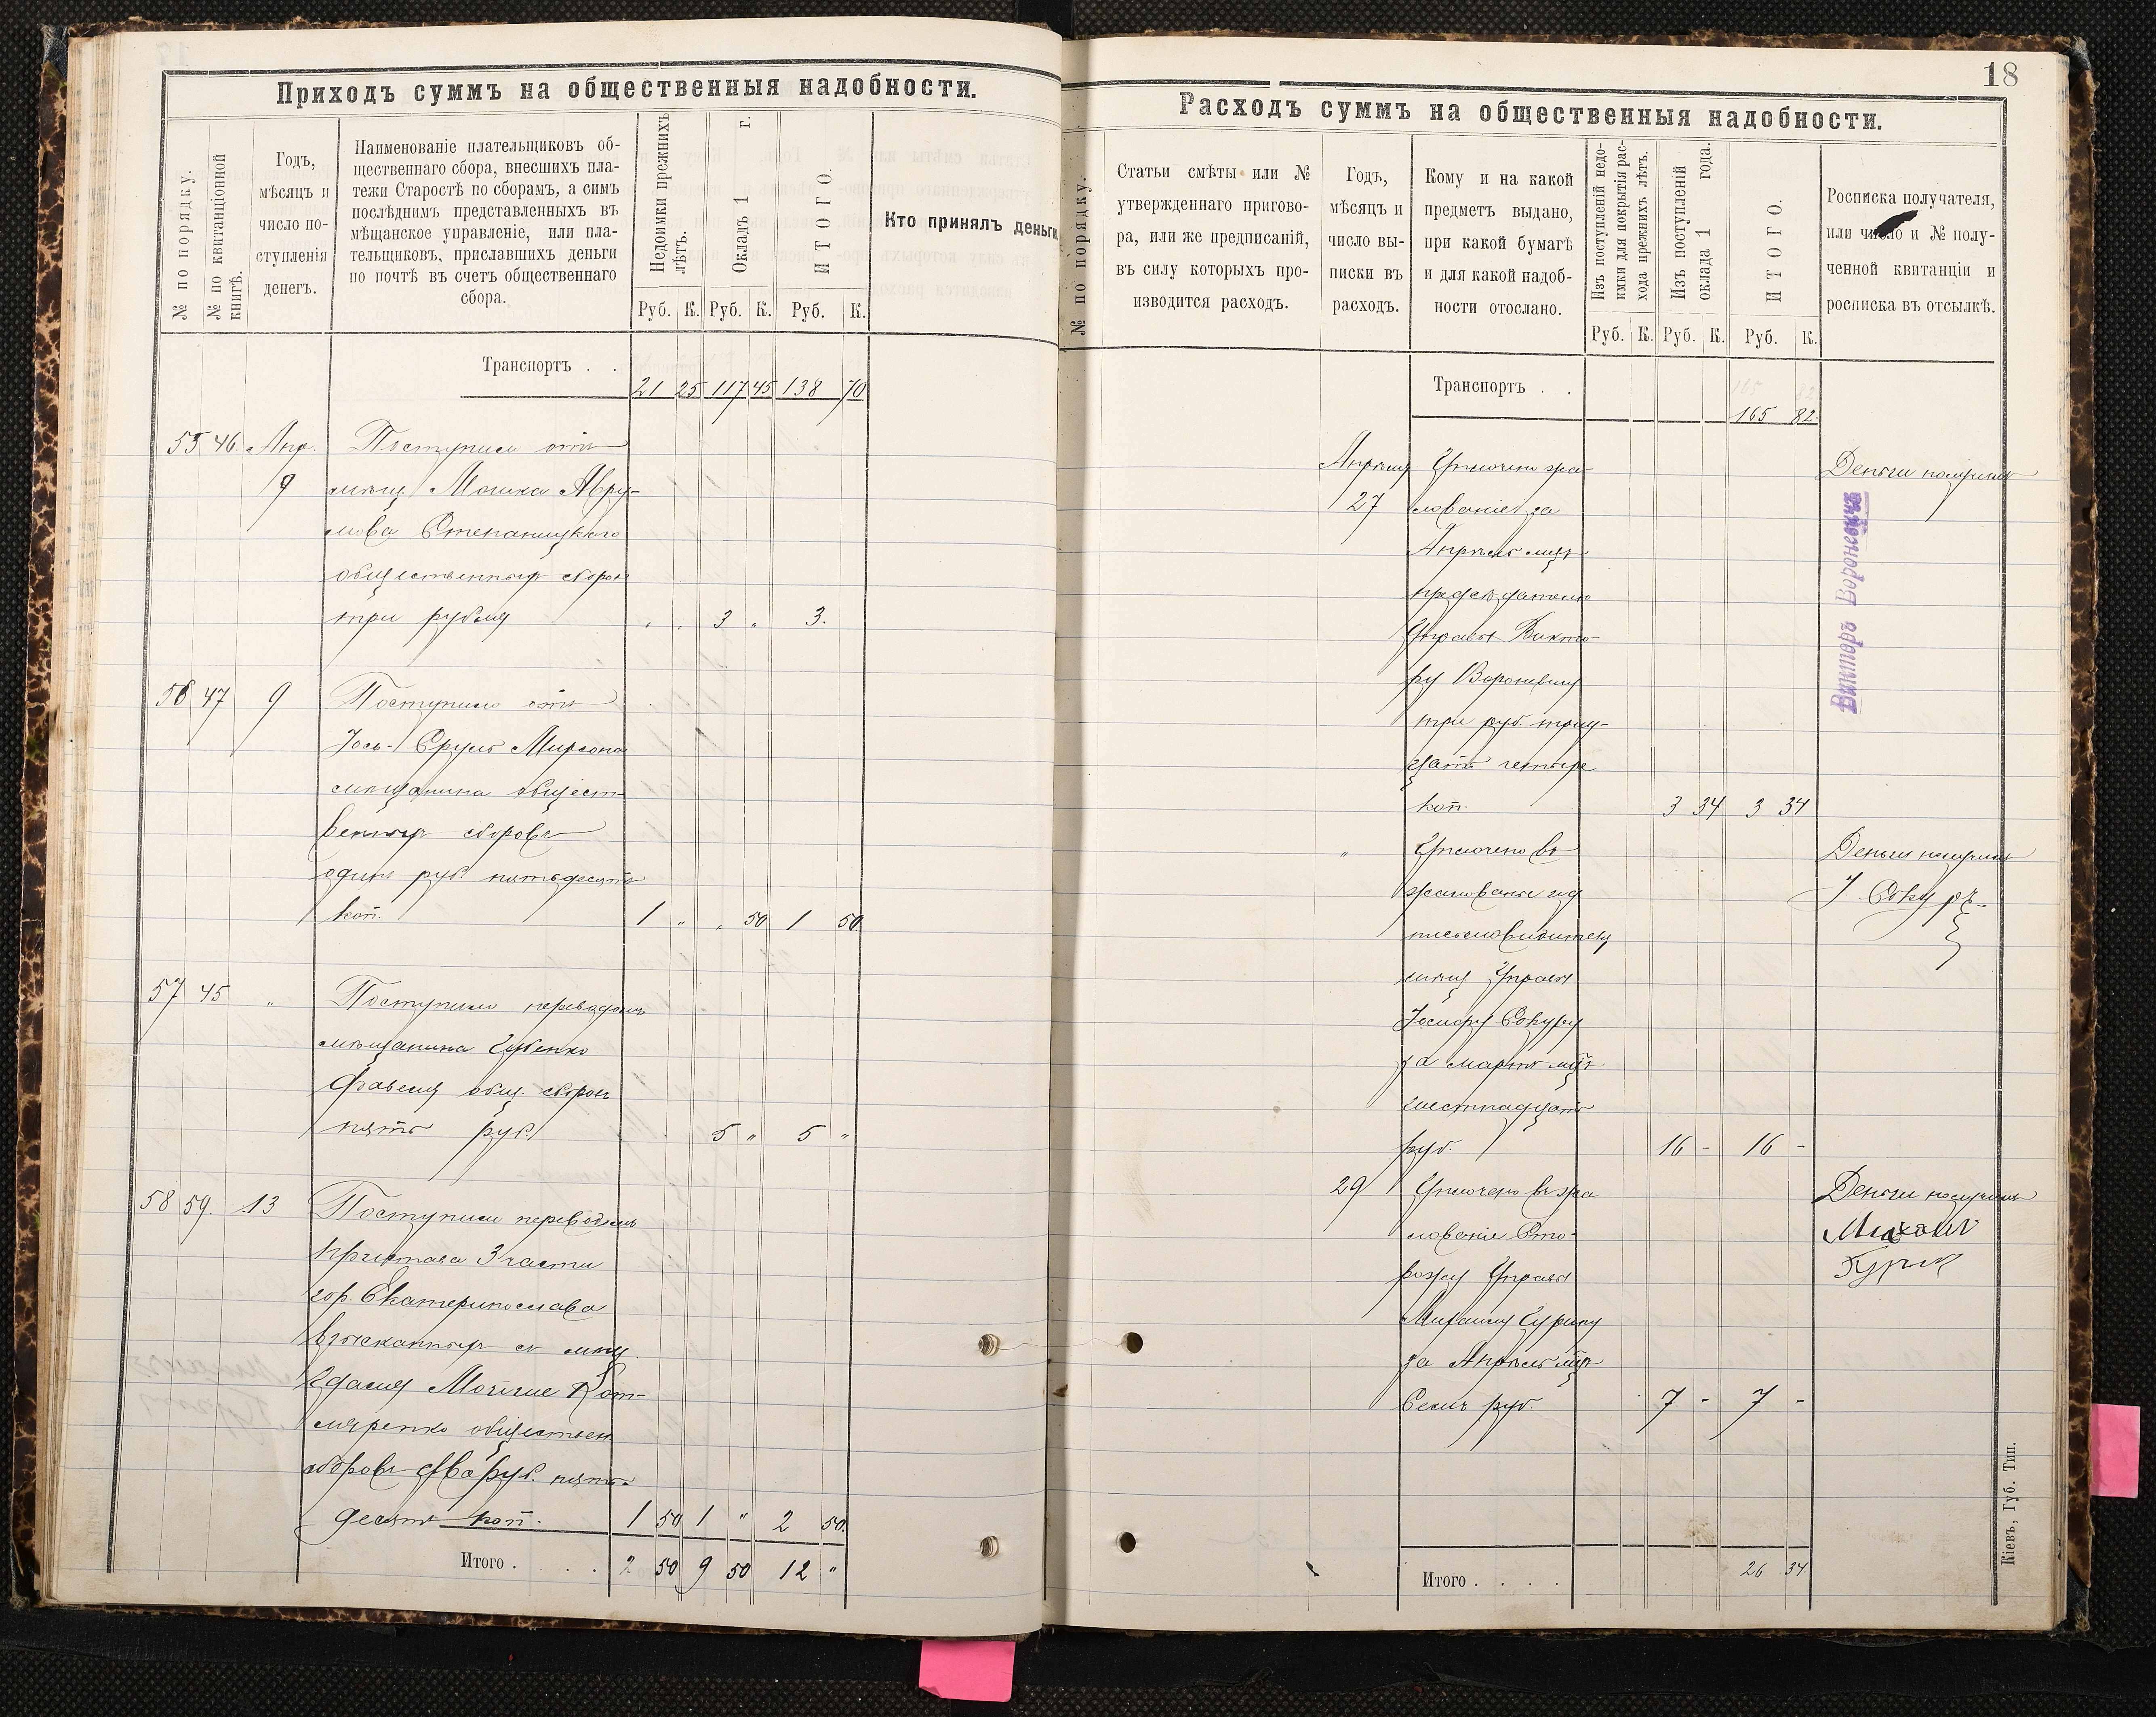 18
Приходъ суммъ на общественныя надобности.
№ по порядку.
№ по квитанціонной
книгѣ.
Годъ,
мѣсяцъ и
число по-
ступленія
денегъ.
Наименованіе плательщиковъ об-
щественнаго сбора, внесшихъ пла-
тежи Старостѣ по сборамъ, а симъ
послѣднимъ представленныхъ въ
мѣщанское управленіе, или пла-
тельщиковъ, приславшихъ деньги
по почтѣ въ счетъ общественнаго
сбора.
Недоимки прежнихъ
лѣтъ.
Окладъ 1 г.
ИТОГО.
Кто принялъ деньги.
Руб. К. Руб. К. Руб. К.
Транспортъ . .
21 25 117 45 138 70
55 46. Апр. Поступили отъ
9 мѣщ. Мошка Авру-
мова Степаницкаго
общественныхъ сборовъ
три рубля " " 3 " 3.
56 47 9 Поступило отъ
Іось-Сруль Мирсона
мѣщанина общест-
венныхъ сборовъ
одинъ руб. пятьдесятъ
коп. 1 " " 50 1 50
57 45 " Поступило переводомъ
мѣщанина
общ. сборовъ
пять руб. 5 " 5 "
58 59. 13 Поступили переводомъ
Пристава 3 части
гор. Екатеринослава
взысканныхъ съ мѣщ.
обществен.
сборовъ два руб. пять-
десятъ коп. 1 50 1 " 2 50.
Итого . . . . 2 50 9 50 12 "
Расходъ суммъ на общественныя надобности.
№ по порядку.
Статьи смѣты или №
утвержденнаго пригово-
ра, или же предписаній,
въ силу которыхъ про-
изводится расходъ.
Годъ,
мѣсяцъ и
число вы-
писки въ
расходъ.
Кому и на какой
предметъ выдано,
при какой бумагѣ
и для какой надоб-
ности отослано.
Изъ поступленій недо-
имки для покрытія рас-
хода прежнихъ лѣтъ.
Изъ поступленій
оклада 1 года.
ИТОГО.
Росписка получателя,
или число и № полу-
ченной квитанціи и
росписка въ отсылкѣ.
Руб. К. Руб. К. Руб. К.
Транспортъ . .
165 82.
Апрѣля Уплочено жа- Деньги получилъ
27 лованіе за
Апрѣль мцъ
предсѣдателю
Управы Викто-
ру Вороневичу
три руб. трид-
цать четыре
коп. 3 34 3 34
Викторъ Вороневичъ
" Уплочено въ Деньги получилъ
жалованье І. Сокуръ
письмоводителю
мѣщ. Управы
Іосифу Сокуру
за мартъ мцъ
шестнадцать
руб. 16 - 16 -
29 Уплочено въ жа Деньги получилъ
лованіе Сто- Михаил
рожу Управы Гурин
Михаилу Гурину
за Апрѣль мцъ
Семь руб. 7 - 7 -
Итого . . . . 26 34.
Кіевъ, Губ. Тип.